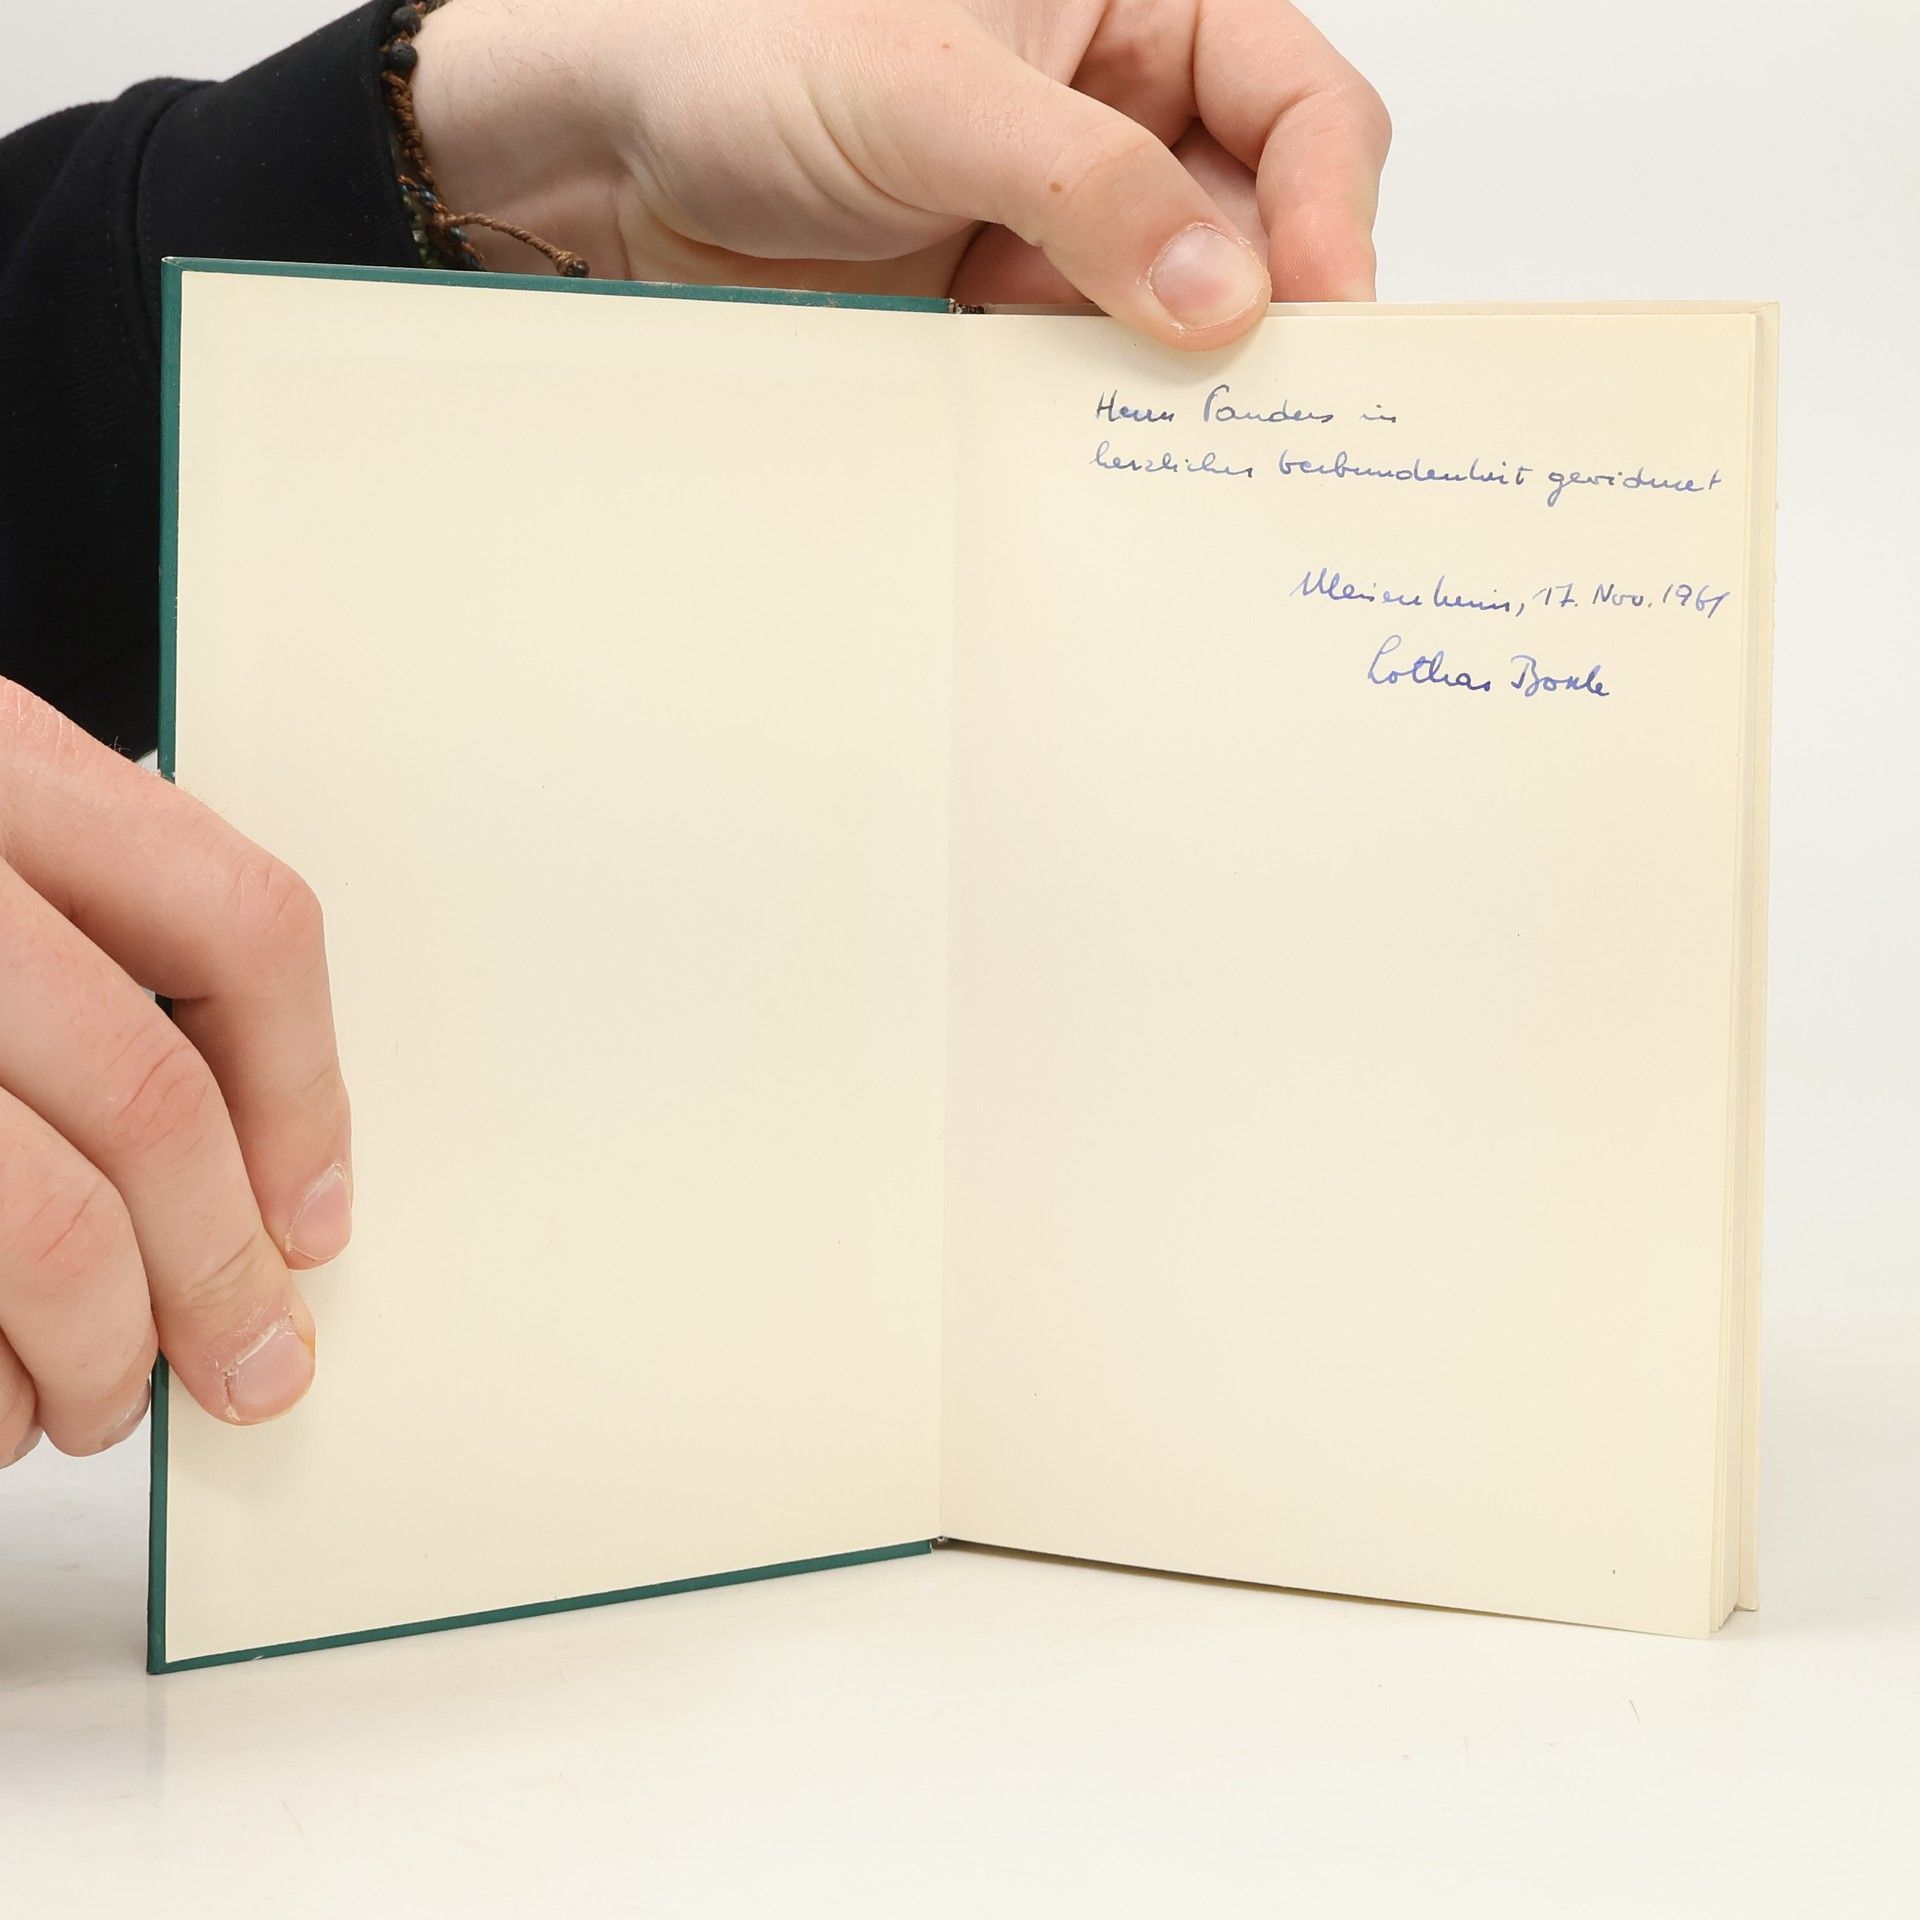 Herrn Sanders in
herzlicher Verbundenheit gewidmet
Meisenheim, 17. Nov. 1961
Lothar Bossle